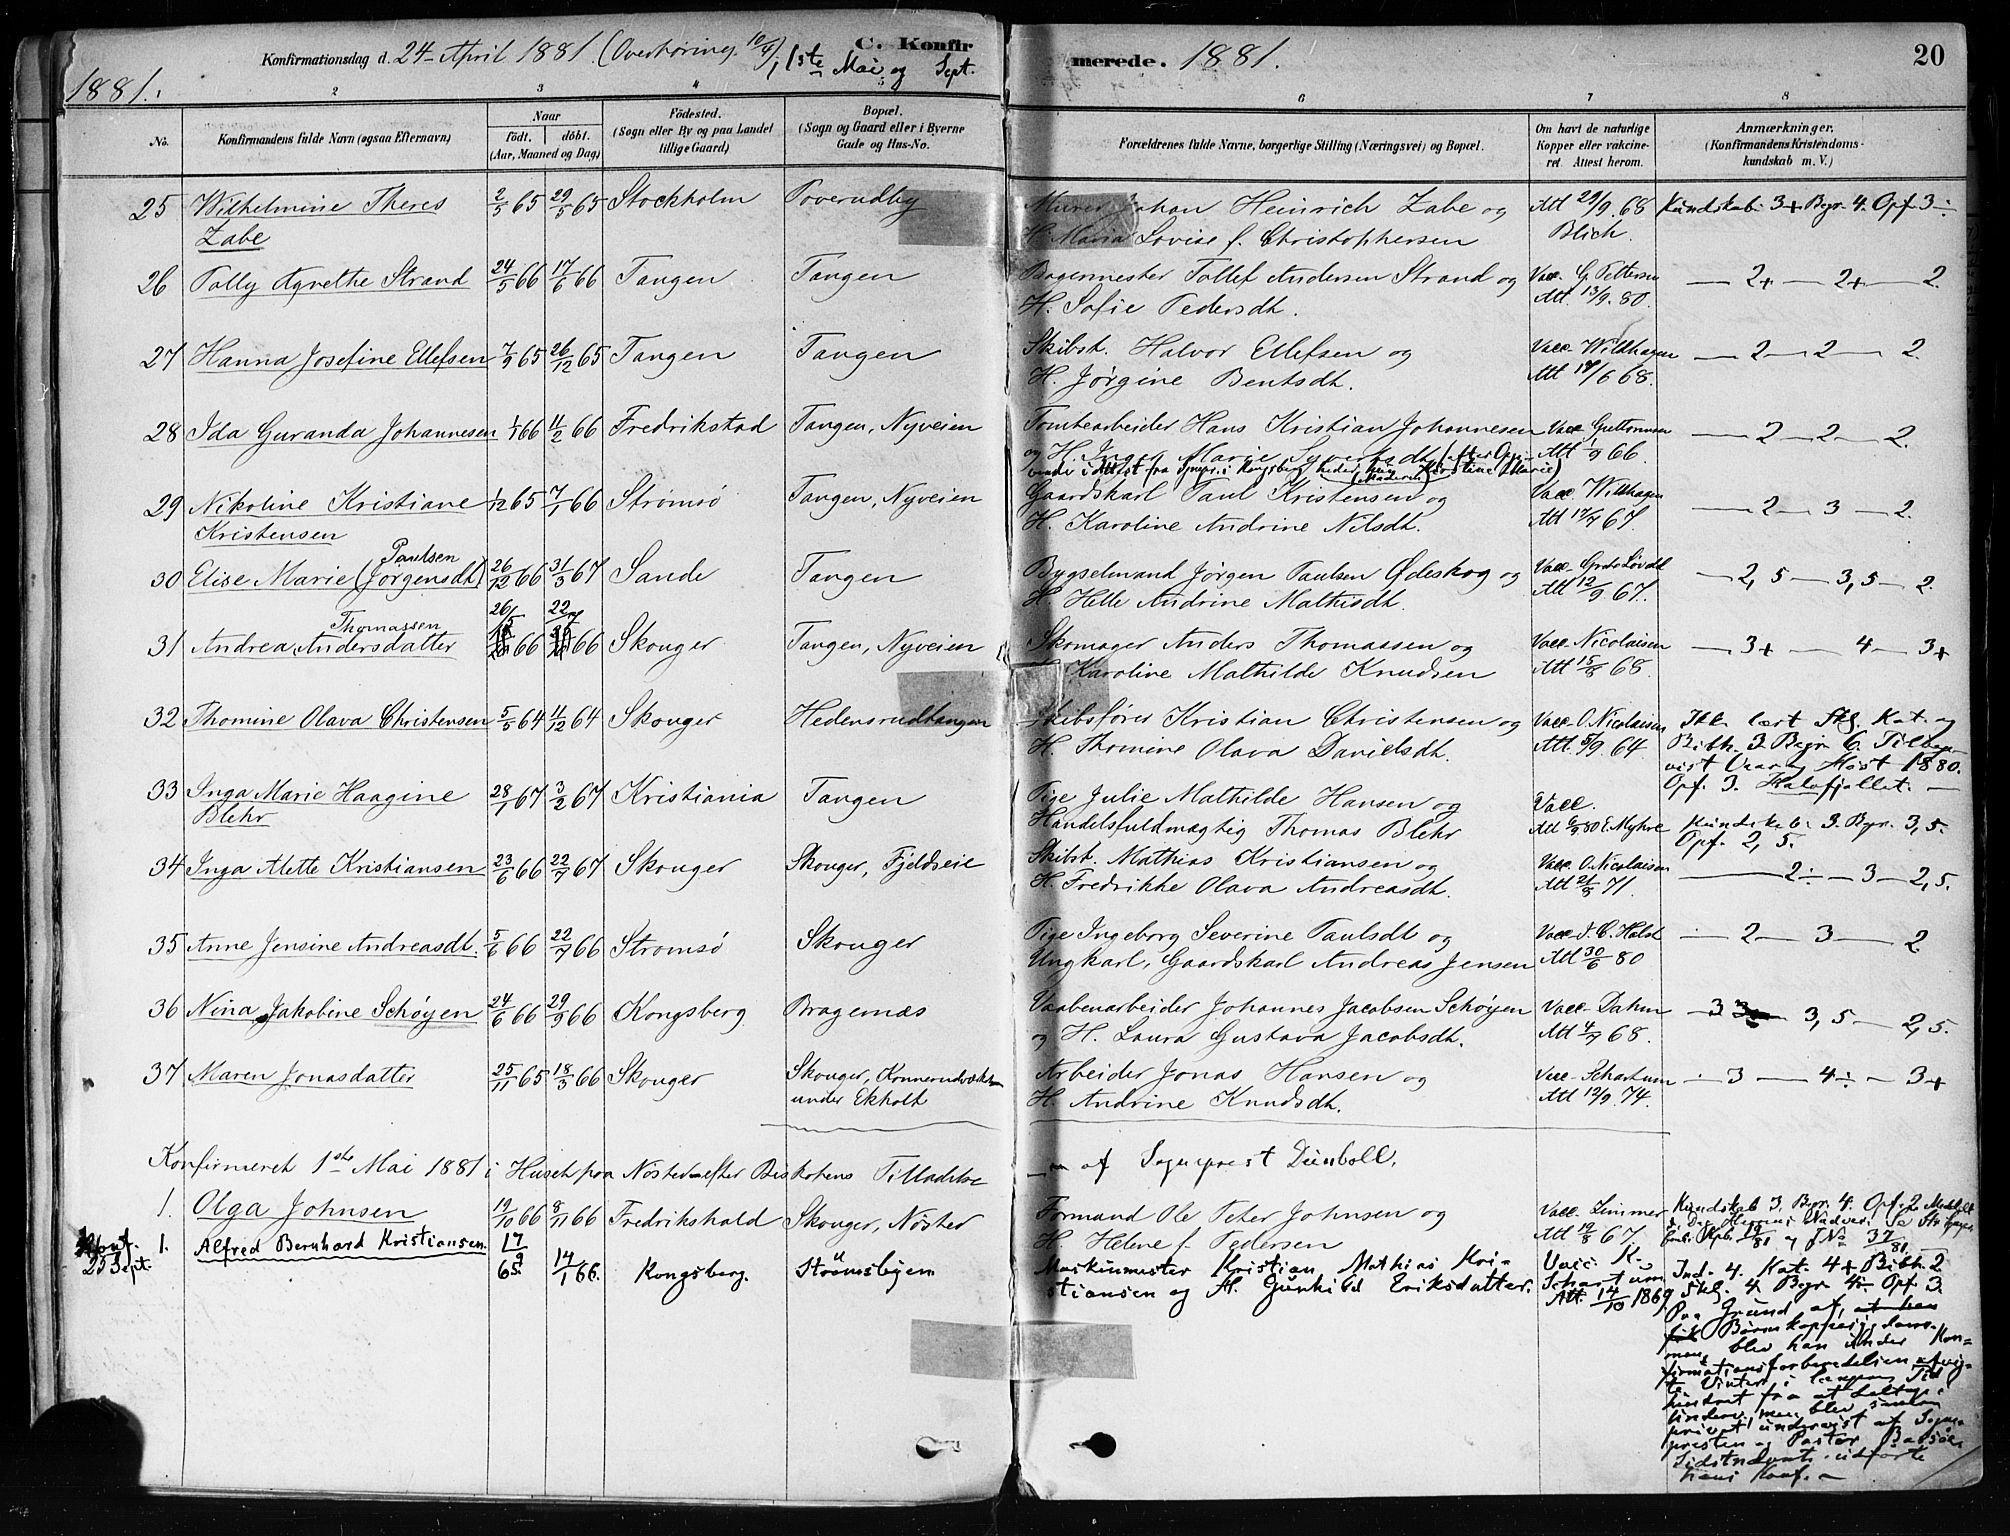 Konfirmationsdag d. 24 April 1881. (Overhøring 10/4), 1ste Mai og Sept.
C. Konfirmerede. 1881.
20
1881.
2 3 4 5 6 7 8
No.
Konfirmandens fulde Navn (ogsaa Efternavn)
Naar født. døbt. (Aar, Maaned og Dag)
Fødested. (Sogn eller By og paa Landet tillige Gaard)
Bopæl. (Sogn og Gaard eller i Byerne Gade og Hus-No.
Forældrenes fulde Navne, borgerlige Stilling (Næringsvei) og Bopæl.
Om havt de naturlige Kopper eller vakcineret. Attest herom.
Anmærkninger. (Konfirmandens Kristendomskundskab m. V.)
25 Wilhelmine Theres 2/5 65 29/5 65 Stockholm Poverudby Murer Johan Heinrich Zabe og Att 29/9 68 Kundskab 3+ Begr. 4. Opf. 3÷
Zabe H. Maria Lovise f. Christophersen Blich.
26 Polly Agnethe Strand 24/5 66 17/6 66 Tangen Tangen Bagermester Tollef Andersen Strand og Vacc. G. Pettersen — 2+ — 2+ — 2.
H. Sofie Pedersdt. Att. 13/9. 80.
27 Hanna Josefine Ellefsen 7/9 65 26/12 65 Tangen Tangen Skibst. Halvor Ellefsen og Vacc. Wildhagen — 2 — 2 — 2.
H. Jørgine Bentsdt. Att 14/6 68.
28 Ida Guranda Johannesen 1/1 66 11/2 66 Fredrikstad Tangen, Nyveien Tomtearbeider Hans Kristian Johannesen Vacc Guttormsen — 2 — 2 — 2.
og H. Inger Marie Syvertsdt. Att 1/9 66.
29 Nikoline Kristiane 1/12 65 7/1 66 Strømsø Tangen, Nyveien Gaardskarl Paul Kristensen og Vacc Wildhagen — 2 — 3 — 2.
Kristensen H. Karoline Andrine Nilsdt. Att 12/7 67.
Paulsen
30 Elise Marie (Jørgensdt) 26/12 66 31/3 67 Sande Tangen Bygselmand Jørgen Paulsen Ødeskog og — 2,5 — 3,5 — 2.
H. Helle Andrine Mathisdt. Att 12/9 67.
Thomassen
31 Andrea Andersdatter 66 66 Skouger Tangen, Nyveien Skomager Anders Thomassen og Vacc Nicolaisen — 3+ — 4 — 3+
Karoline Mathilde Knudsen Att 15/8 68.
32 Thomine Olava Christensen 5/5 64 11/12 64 Skouger Hedensrudtangen Skibsfører Kristian Christensen og Vacc. O. Nicolaisen Ikke lært Skl. Kat. og
H. Thomine Olava Danielsdt. Att. 5/9. 64. Bibh. 3 Begr 6.
Vaar og Høst 1880.
Opf. 3.
33 Inga Marie Haagine 28/1 67 3/2 67 Kristiania Tangen Pige Julie Mathilde Hansen og Vacc.
Blehr Handelsfuldmægtig Thomas Blehr E. Myhre Kundskab. 3. Begr. 3,5.
Opf. 2,5.
34 Inga Alette Kristiansen 23/6 66 22/7 67 Skouger Skouger, Fjeldseie Skibst. Mathias Kristiansen og Vacc O. Nicolaisen — 2÷ — 3 — 2,5.
H. Fredrikke Olava Andreasdt. Att 21/8 71.
35 Anne Jensine Andreasdt. 5/6 66 22/7 66 Strømsø Skouger Pige Ingeborg Severine Paulsdt og Vacc. J. C. Holst — 2 — 3 — 2
Ungkarl, Gaardskarl Andreas Jensen Att 30/6 80
36 Nina Jakobine Schøyen 24/6 66 29/9 66 Kongsberg Bragernæs Vaabenarbeider Johannes Jacobsen Schøyen Vacc. Dahm — 3 — 3,5 — 2,5.
og H. Laura Gustava Jacobsdt. Att 4/7 68.
37 Maren Jonasdatter 25/11 65 18/3 66 Skouger Skouger, Konnerudværket Arbeider Jonas Hansen og Vacc. Schartum — 3 — 4÷ — 3+
under Ekholt H. Andrine Knudsdt. Att 12/9. 74.
Konfirmeret 1ste Mai 1881 i Huset paa Nøsted efter Biskopens Tilladelse
— af Sogneprest Dunboll.
1. Olga Johnsen 19/10 66 8/11 66 Fredrikshald Skouger, Nøsted Formand Ole Peter Johnsen og Vacc. Limmer Kundskab 3, Begr. 4. Opf. 2
H. Helene f. Pedersen Att 19/8 67.
Konf. 25 Sept. 1. Alfred Bernhard Kristiansen 17/9 65 14/1 66. Kongsberg. Strømsbyen Maskinmester Kristian Mathias Kristiansen og H. Gunhild Eriksdatter. Vacc. K. Schartum Att. 14/10 1869. Ind. 4. Kat. 4+ Bibh. 2
Skl. 4. Begr 4÷ Opf. 3.
Paa Grund af,
blev han under Konfirmationsforberedelsen
Vinter i længere Tid
hindret fra at deltage i
privat undervist af Sognepresten og Pastor
Sidstnævnte udførte
hans Konf.